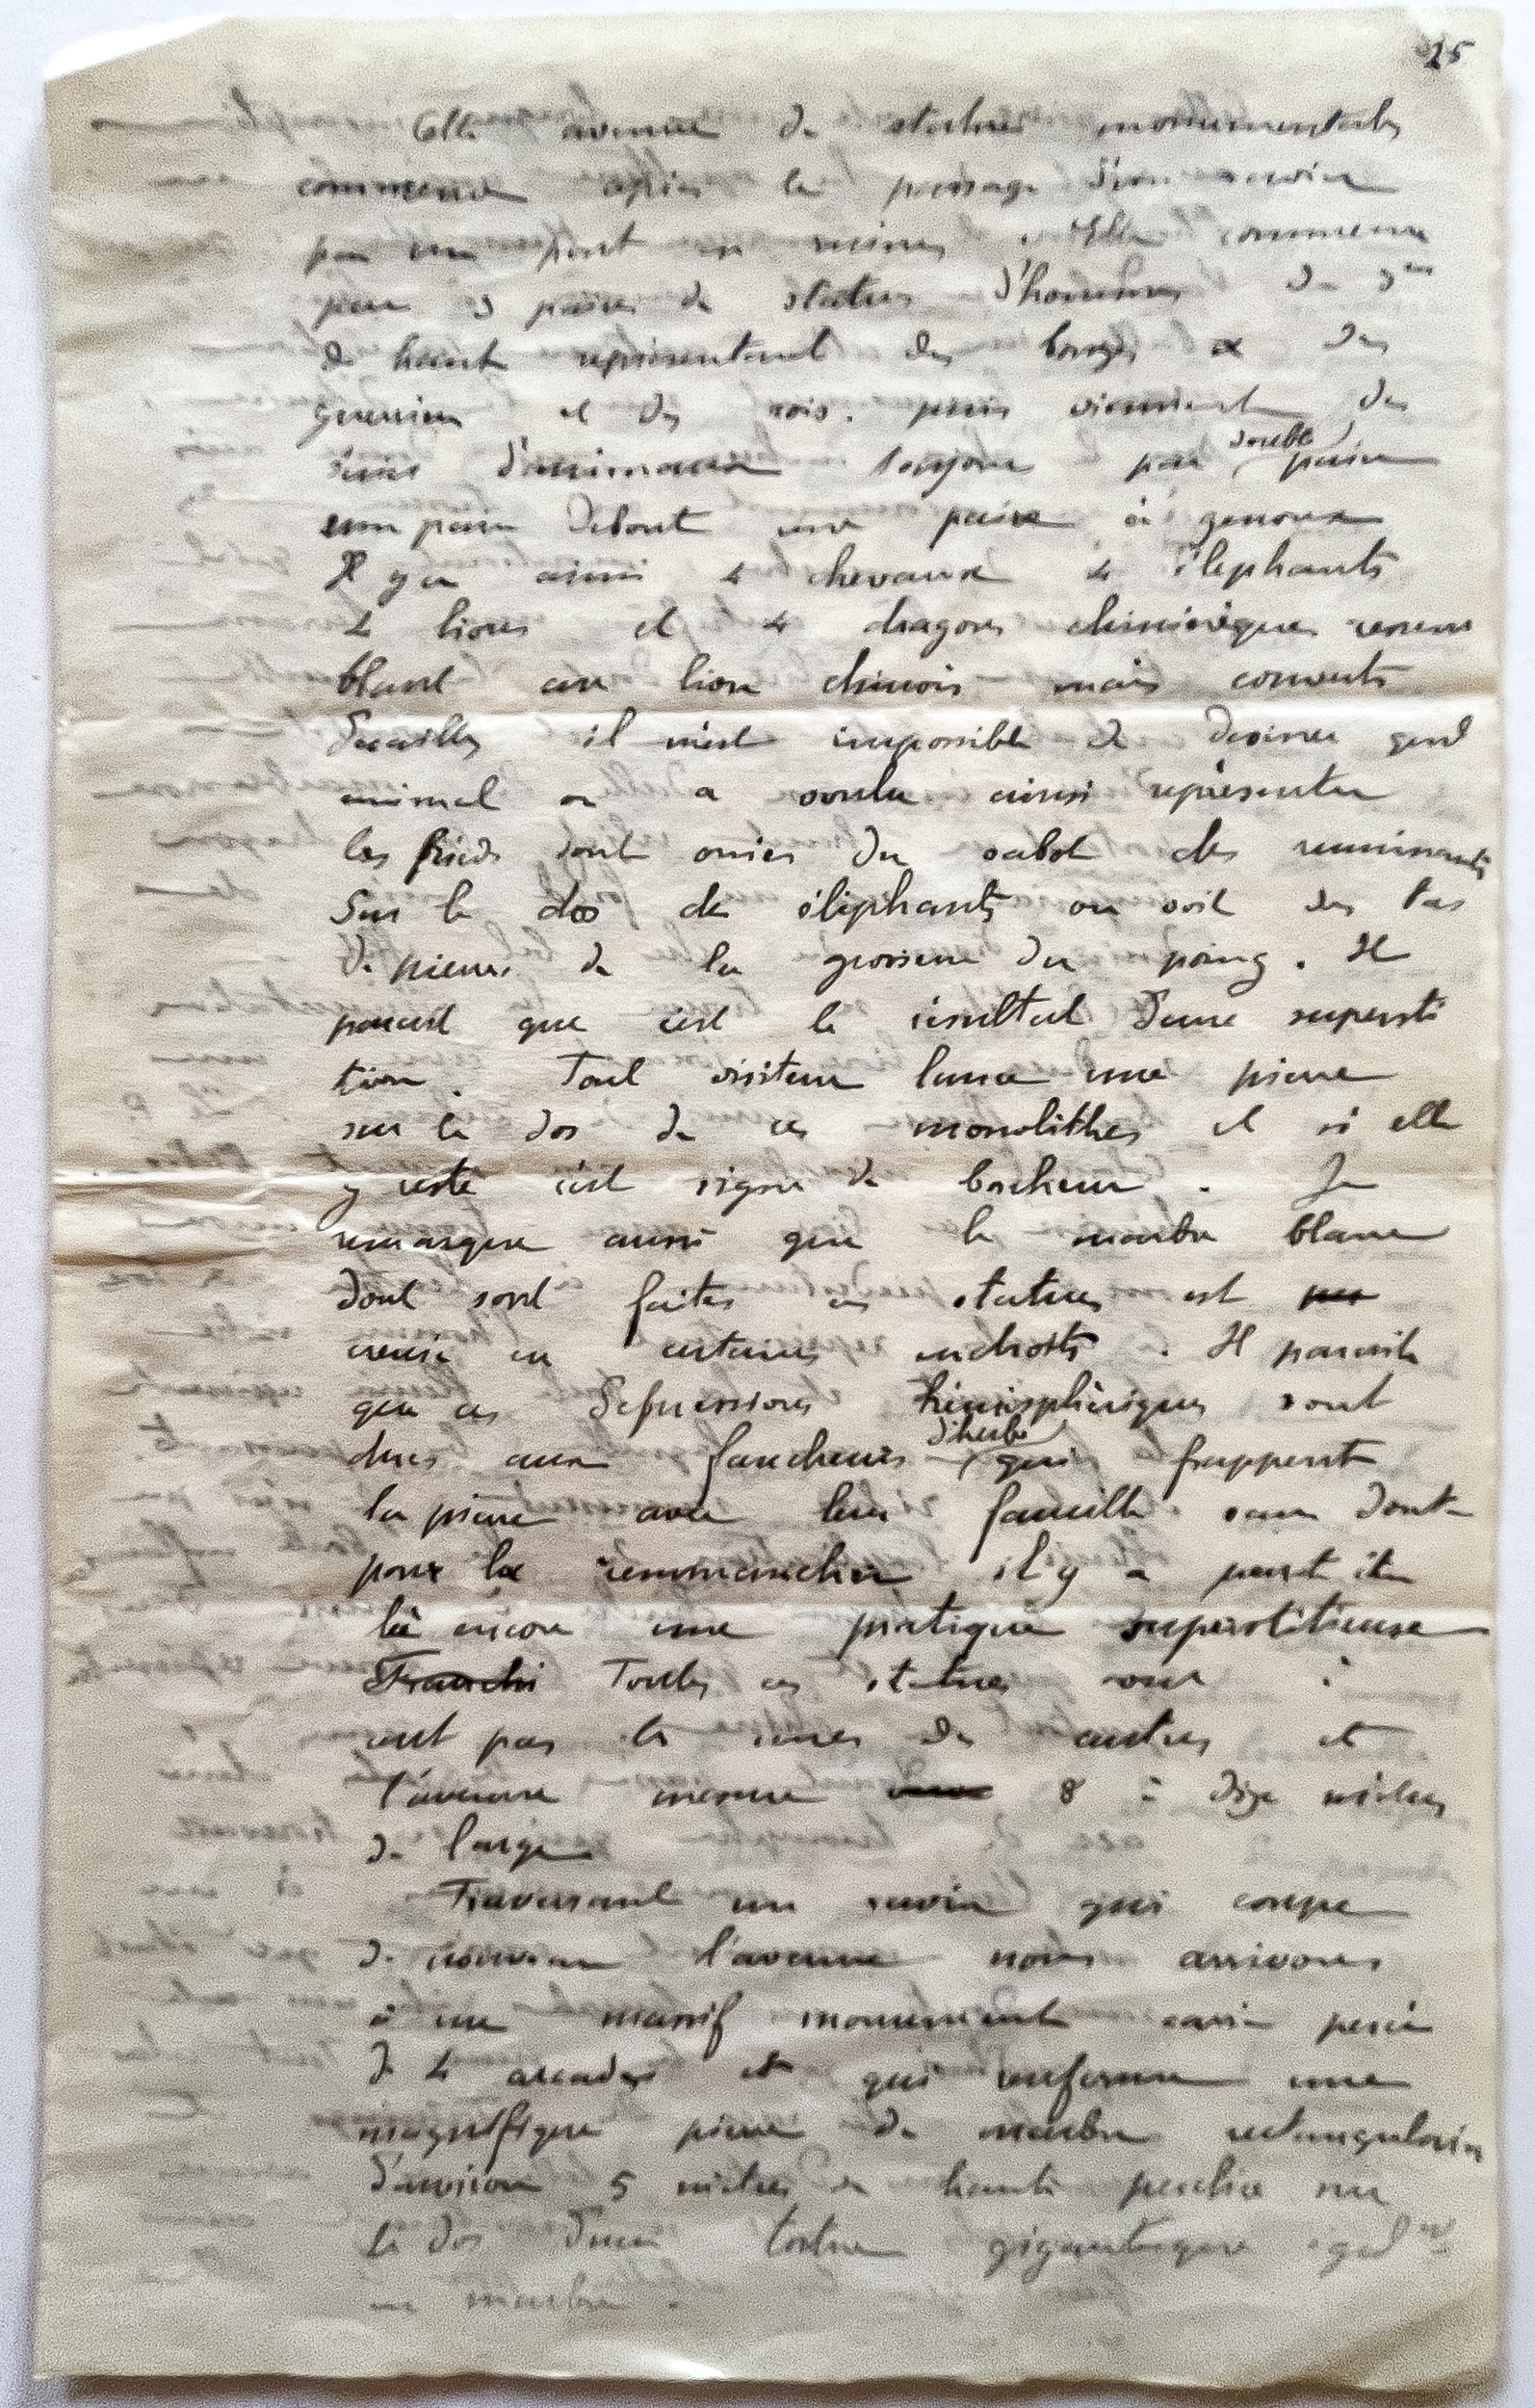 25
Cette avenue de statues monumentales
commence après le passage d'un ravin
par un pont en ruines. Elle commence
par 3 paires de statues d'hommes de 3m
de haut représentant des bonzes et des
guerriers et des rois. puis viennent des
séries d'animaux toujours par double paire
une paire debout une paire à genoux
Il y a ainsi 4 chevaux 4 éléphants
4 lions et 4 dragons chimériques ressem
blant au lion chinois mais couverts
d'ecailles il m'est impossible de deviner quel
animal on a voulu ainsi représenter
les pieds sont ornés du sabot des ruminants
Sur le dos des éléphants on voit des tas
de pierres de la grosseur du poing. Il
parait que c'est le résultat d'une supersti
tion. Tout visiteur lance une pierre
sur le dos de ces monolithes et si elle
y reste c'est signe de bonheur. Je
remarque aussi que le marbre blanc
dont sont faites ces statues est
creusé en certains endroits. Il parait
que ces depressions hémisphériques sont
dues aux faucheurs d'herbe qui frappent
la pierre avec leur faucille sans doute
pour la remmancher il y a peut etre
là encore une pratique superstitieuse
Toutes ces statues sont à
cent pas les unes des autres et
l'avenue mesure 8 à dix mètres
de large
Traversant un ravin qui coupe
de nouveau l'avenue nous arrivons
à un massif monument carré percé
de 4 arcades et qui renferme une
magnifique pierre de marbre rectangulaire
d'environ 5 mètres de haut perchée sur
le dos d'une tortue gigantesque egalnt
en marbre.